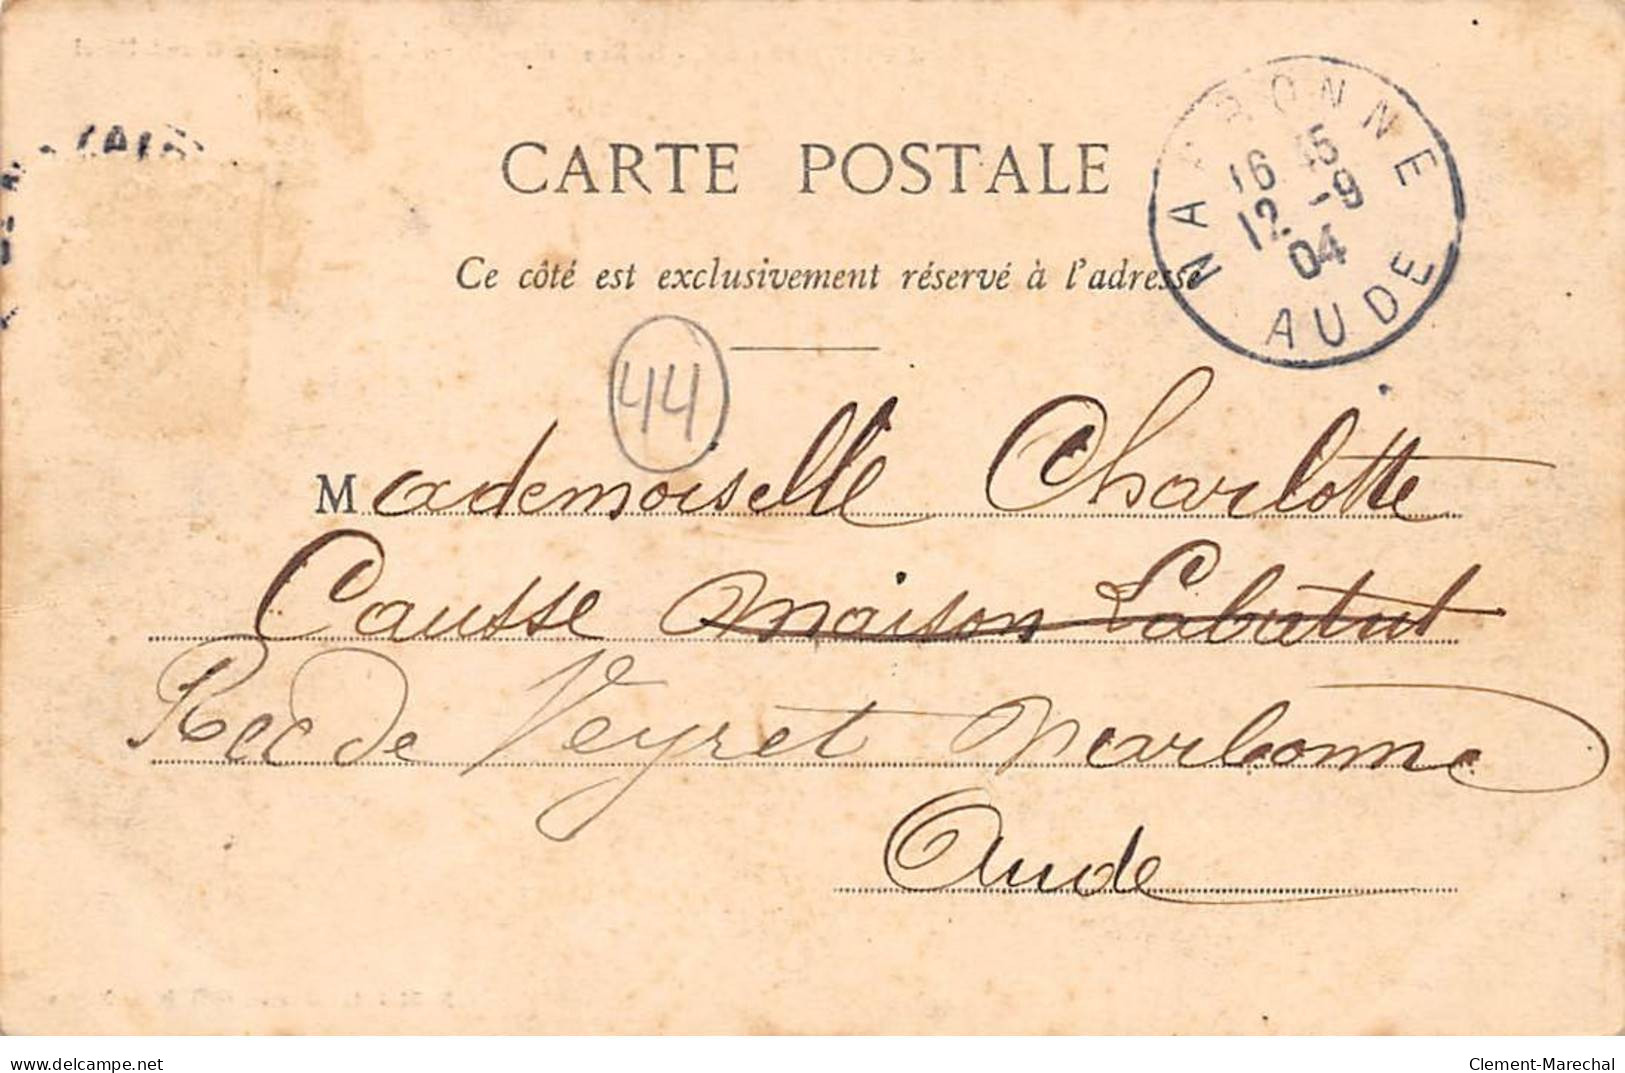 CARTE POSTALE
Ce côté est exclusivement réservé à l'adresse
NARBONNE
16 45
12 -9
04
AUDE
44
Mademoiselle Charlotte
Causse maison Labatut
Rec de Veyret Narbonne
Aude
www.delcampe.net
Clement-Marechal